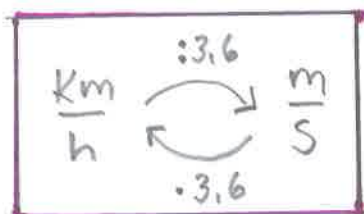 :3,6
Km/h m/s
·3,6